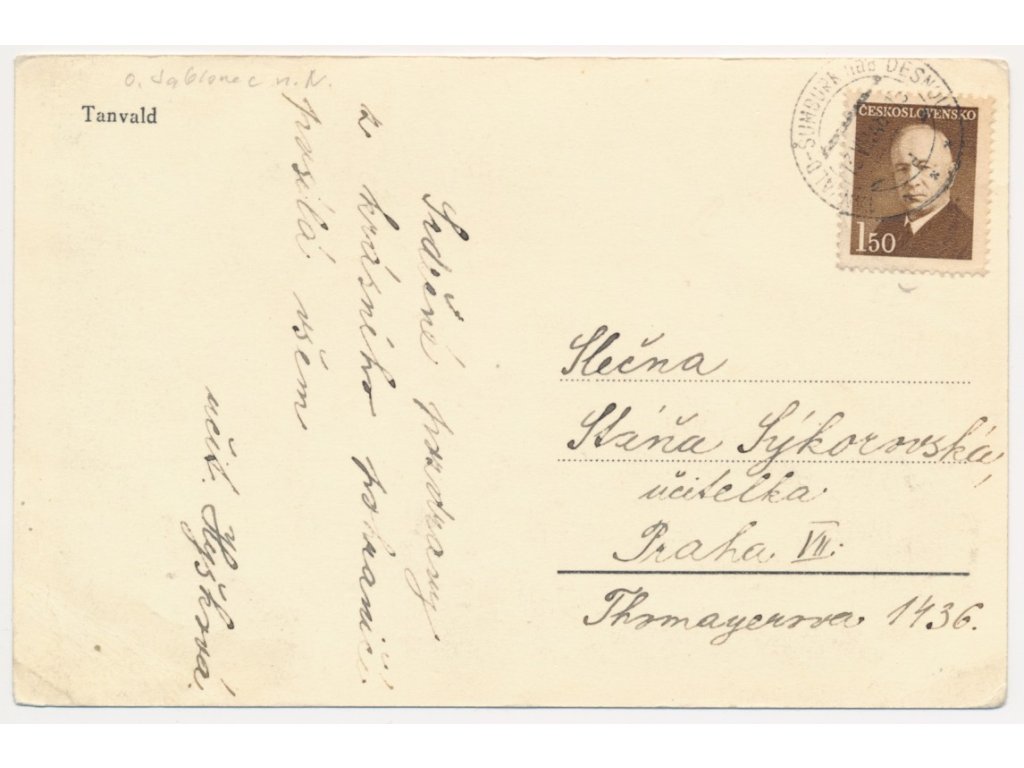 o. Jablonec n. N.
Tanvald
Srdečné pozdravy
z krásného pohraničí
posílá všem
učit. Hyšková.
ČESKOSLOVENSKO
1 50
ŠUMBURK nad DESNOU
Slečna
Stáňa Sýkorovská
učitelka
Praha VII.
Thomayerova 1436.